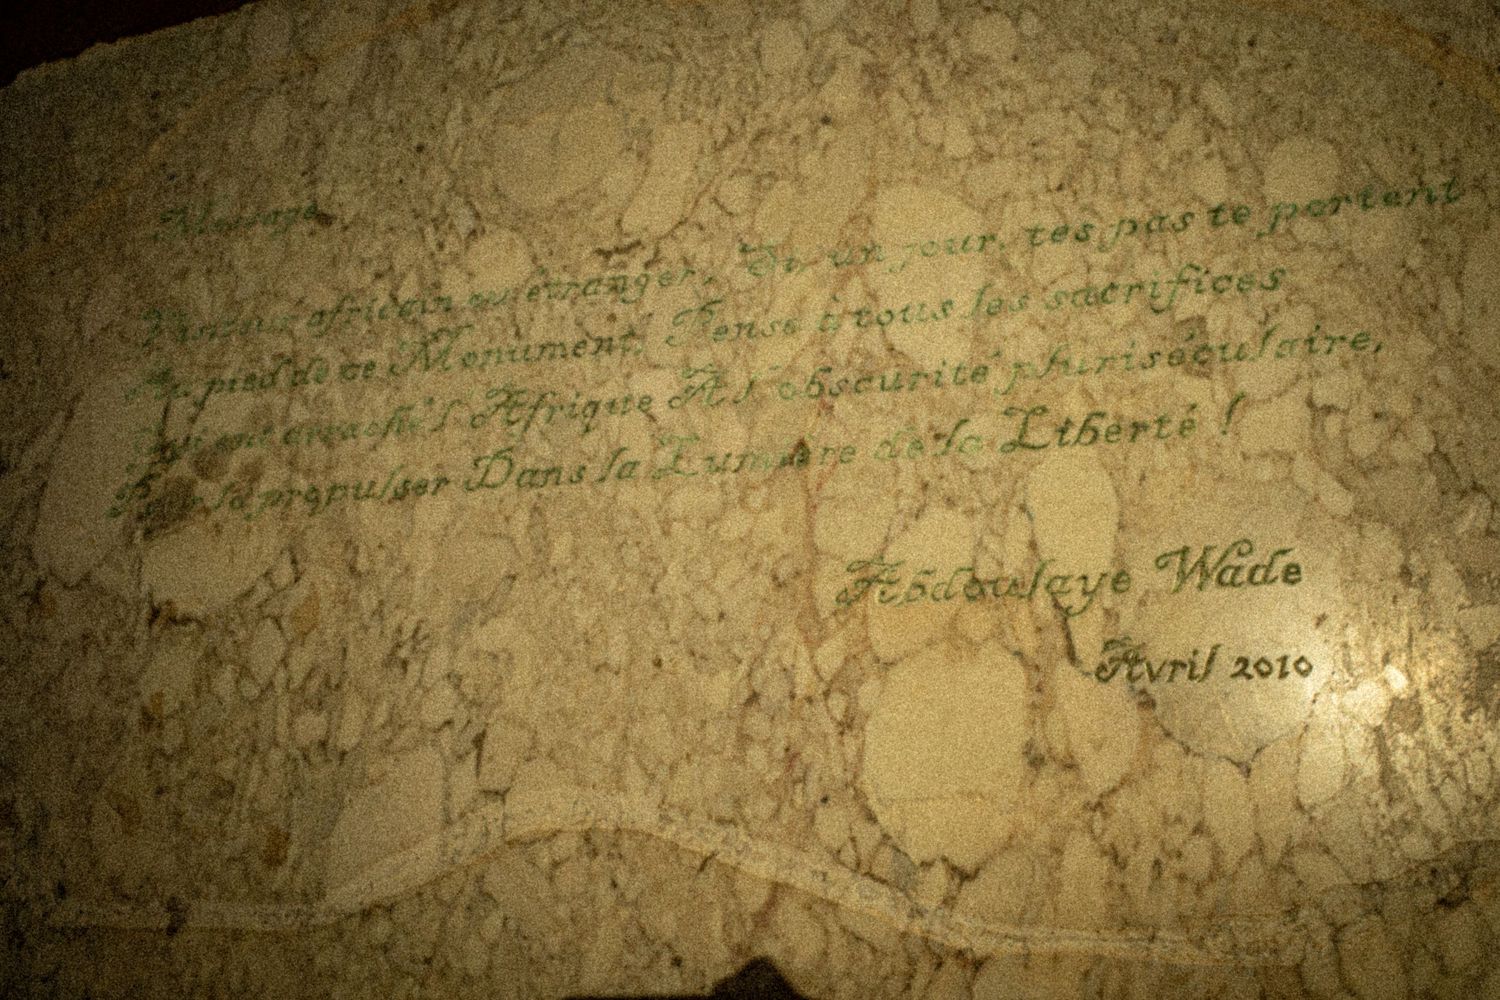 Message
Visiteur africain ou étranger, Si un jour, tes pas te portent
Au pied de ce Monument, Pense à tous les sacrifices
Qui ont arraché l'Afrique A l'obscurité pluriséculaire,
Pour la propulser Dans la Lumière de la Liberté !
Abdoulaye Wade
Avril 2010